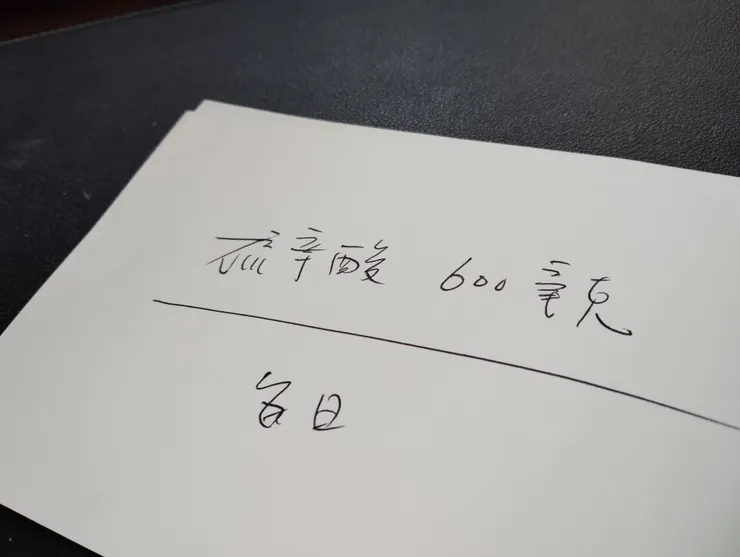 硫辛酸 600 毫克
每日